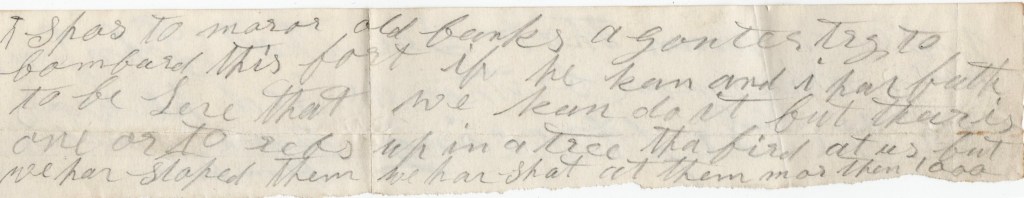 I spos to maror old banks a gontes try to
bombard this fort if he kan and i har fath
to be Leve that we kan do it but thear is
one or to rebs up in a tree tha fird at us but
we har stoped them we har shat at them mor then 1000